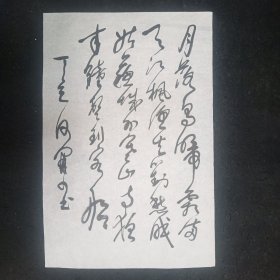 月落乌啼霜满
天江枫渔火对愁眠
姑苏城外寒山寺夜
半钟声到客船
丁亥